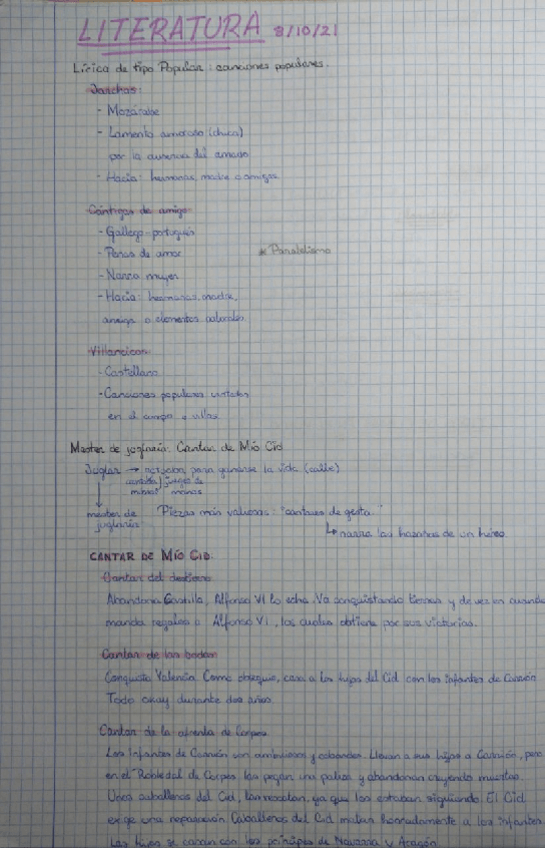 LITERATURA 8/10/21
Lírica de tipo Popular: canciones populares.
Jarchas:
- Mozárabe
- Lamento amoroso (chica)
por la ausencia del amado
- Hacia: hermanas, madre o amigas
Cántigas de amigo
- Gallego-portugués
- Penas de amor
* Paralelismo
- Narra mujer
- Hacia: hermanas, madre,
amiga o elementos naturales
Villancicos
- Castellano
- Canciones populares
en el campo o villas
Mester de juglaría: Cantar de Mio Cid
Juglar → actuaba para ganarse la vida (calle)
cantaba / juegos de
mimos manos
mester de juglaría
Piezas más valiosas: "cantares de gesta."
↳ narra las hazañas de un héroe.
CANTAR DE MÍO CID.
Cantar del destierro
Abandona Castilla, Alfonso VI lo echa. Va conquistando tierras y de vez en cuando
manda regalos a Alfonso VI, los cuales obtiene por sus victorias.
Cantar de las bodas
Conquista Valencia. Como obsequio, casa a las hijas del Cid con los infantes de Carrión
Todo okay durante dos años.
Cantar de la afrenta de Corpes
Los Infantes de Carrión son ambiciosos y cobardes. Llevan a sus hijas a Carrión, pero
en el "Robledal de Corpes las pegan una paliza y abandonan creyendo muertas.
Unos caballeros del Cid, las rescatan, ya que los estaban siguiendo. El Cid
exige una reparación. Caballeros del Cid matan honradamente a los infantes.
Las hijas se casan con los príncipes de Navarra y Aragón.